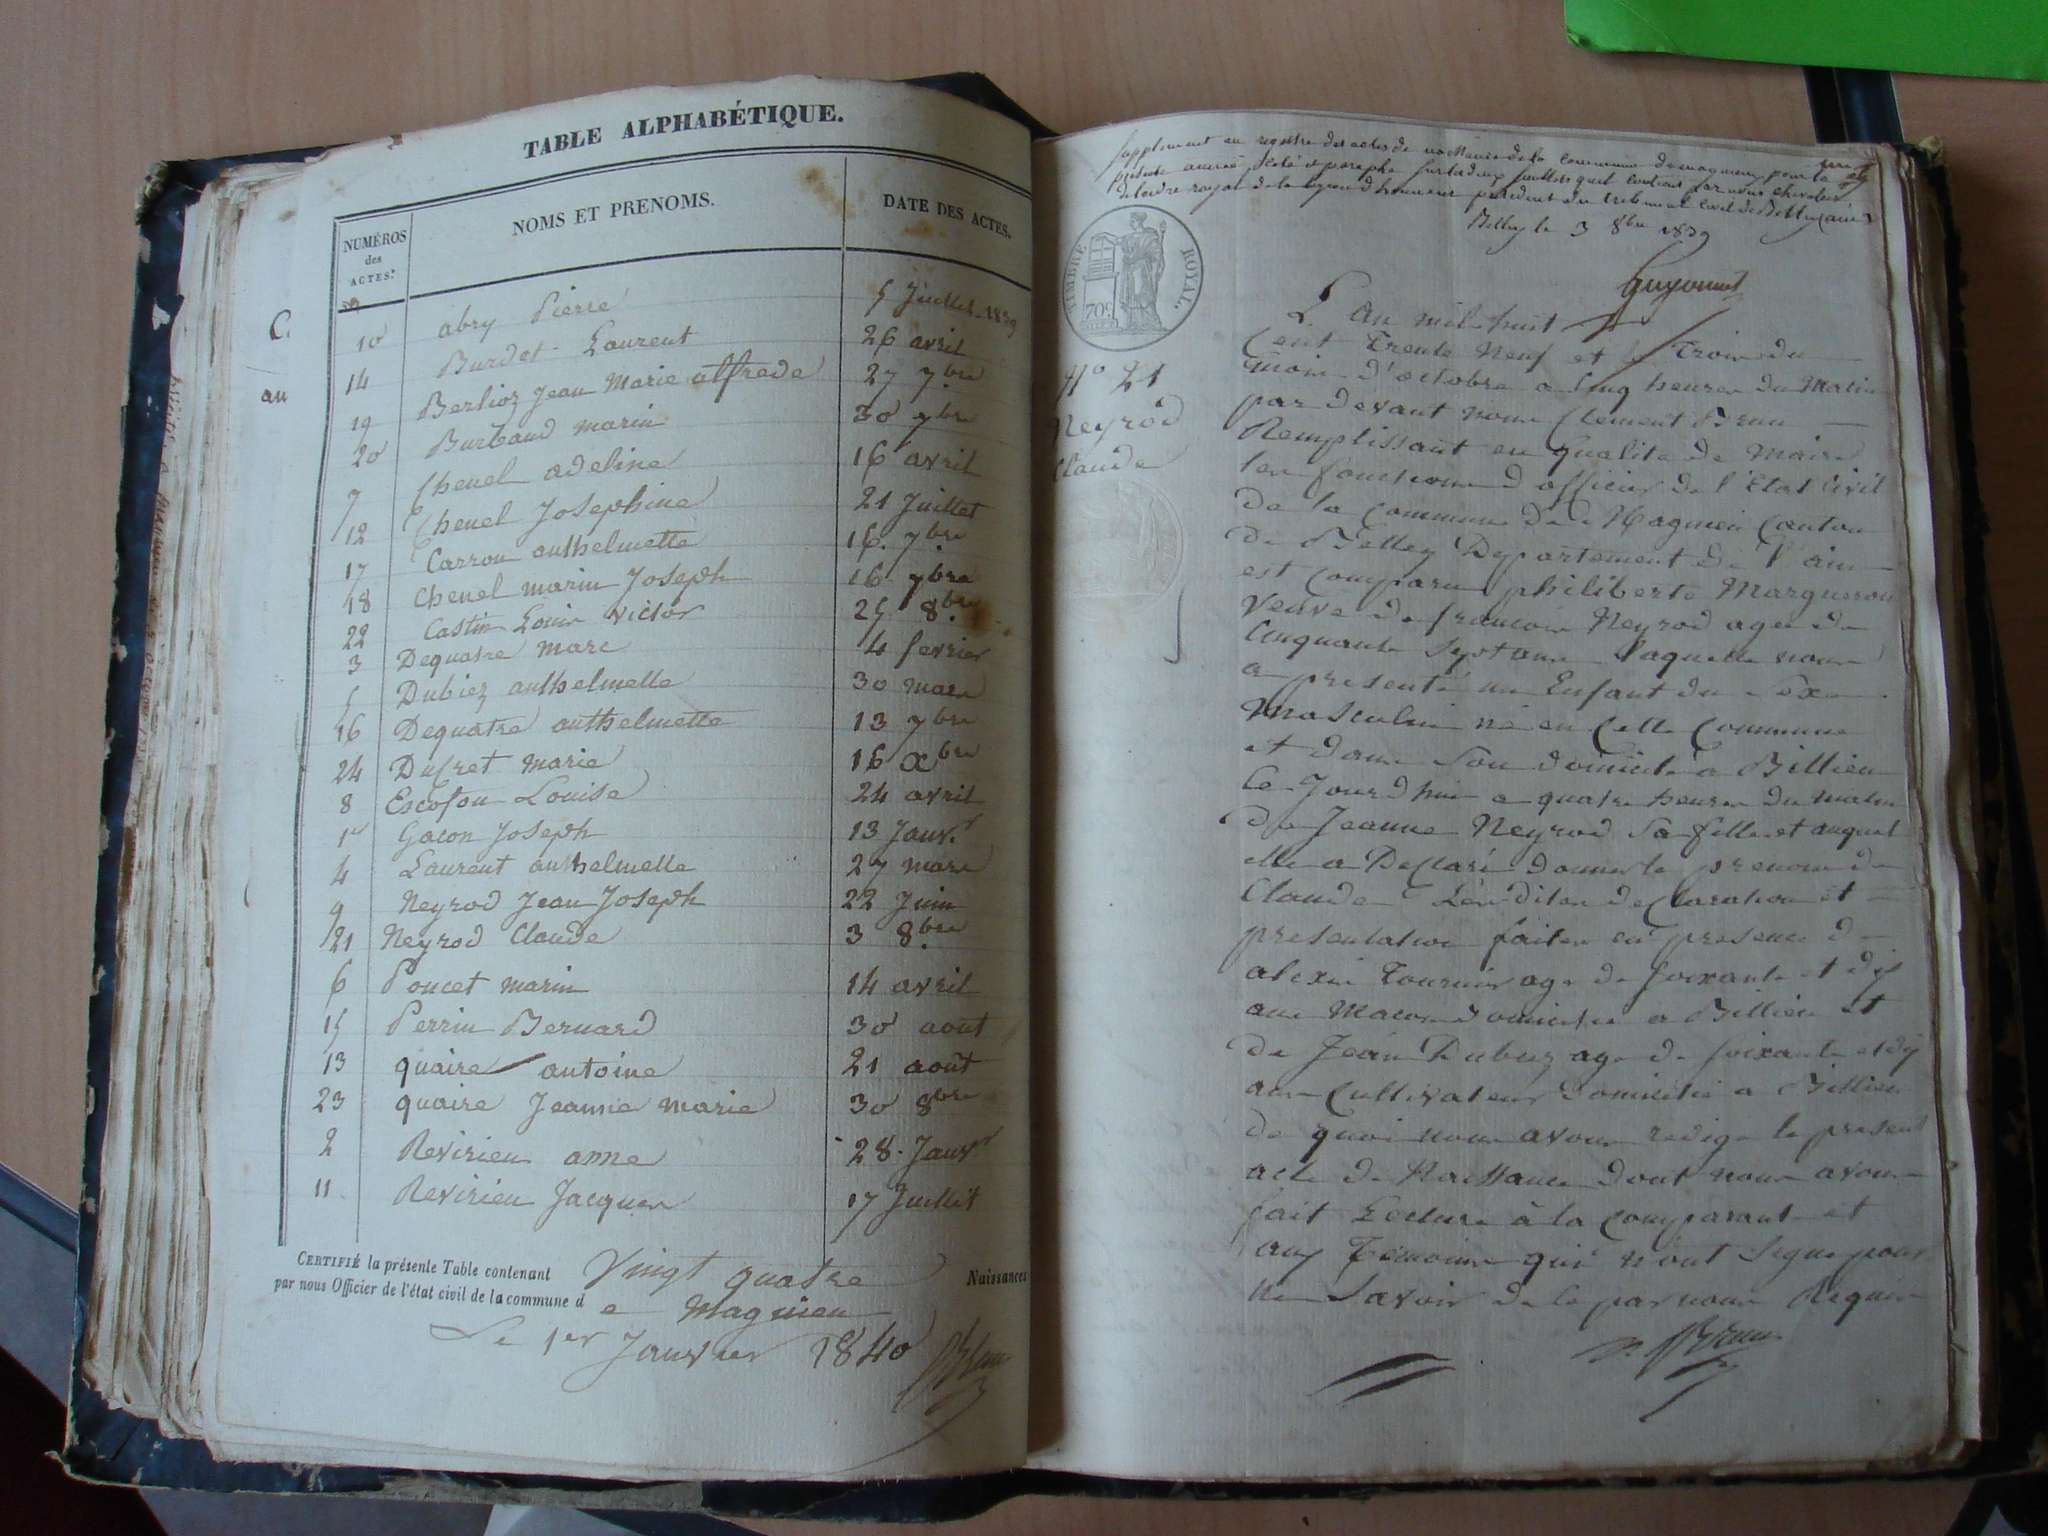 TABLE ALPHABÉTIQUE.
NUMÉROS des ACTES. NOMS ET PRENOMS. DATE DES ACTES.
C.
au
10 abry Pierre 5 Juillet 1839
14 Burdet Laurent 26 avril
19 Berlioz Jean Marie alfrede 27 7bre
20 Burbaud marin 30 7bre
7 Chenel adeline 16 avril
12 Chenel Josephine 21 Juillet
17 Carron anthelmette 16 7bre
18 Chenel marin Joseph 16 7bre
22 Castin Louis victor 25 8bre
3 Dequatre marc 4 fevrier
5 Dubiez anthelmette 30 mars
16 Dequatre anthelmette 13 7bre
24 Ducret marie 16 xbre
8 Escofon Louise 24 avril
1er Gacon Joseph 13 Janvr
4 Laurent anthelmette 27 mars
9 Neyrod Jean Joseph 22 Juin
21 Neyrod Claude 3 8bre
6 Poncet marin 14 avril
15 Perrin Bernard 30 aout
13 quaire antoine 21 août
23 quaire Jeanne marie 30 8bre
2 Revirieu anne 28 Janvr
11 Revirieu Jacques 17 Juillet
CERTIFIÉ la présente Table contenant Vingt quatre Naissances
par nous Officier de l'état civil de la commune d e Magnieu
Le 1er Janvier 1840 Brun
Supplement au registre des actes de naissance de la commune de magnieu pour la
presente année, coté et paraphé sur les deux feuillets qu'il contient par nous chevalier
de l'ordre royal de la legion d'honneur president du tribunal civil de Belley (ain)
Belley le 3 8bre 1839
Guyonnet
TIMBRE ROYAL.
70c
N° 21
Neyrod
Claude
L'an mil huit
Cent Trente Neuf et le Trois du
mois d'octobre a Cinq heures du Matin
par devant nous Clement Brun
Remplissant en qualité de Maire
les fonctions d officier de l'Etat Civil
de la Commune de Magnieu Canton
de Belley Departement de l'ain
est comparue philiberte Margueron
veuve de francois Neyrod agée de
Cinquante Sept ans Laquelle nous
a presenté un Enfant du Sexe
masculin né en Cette Commune
et dans Son domicile a Billieu
Ce Jourd hui a quatre heures du matin
de Jeanne Neyrod Sa fille et auquel
elle a Declaré donner le prenom de
Claude Les dites declaration et
presentation faites en presence d
alexis Tournier age de soixante et dix
ans Macon domicilié a Billieu et
de Jean Dubiez age de soixante et dix
ans Cultivateur domicilié a Billieu
de quoi nous avons redigé le present
acte de Naissance dont nous avons
fait Lecture à la Comparante et
aux Temoins qui n'ont Signe pour
ne Savoir de ce par nous Requis
Brun